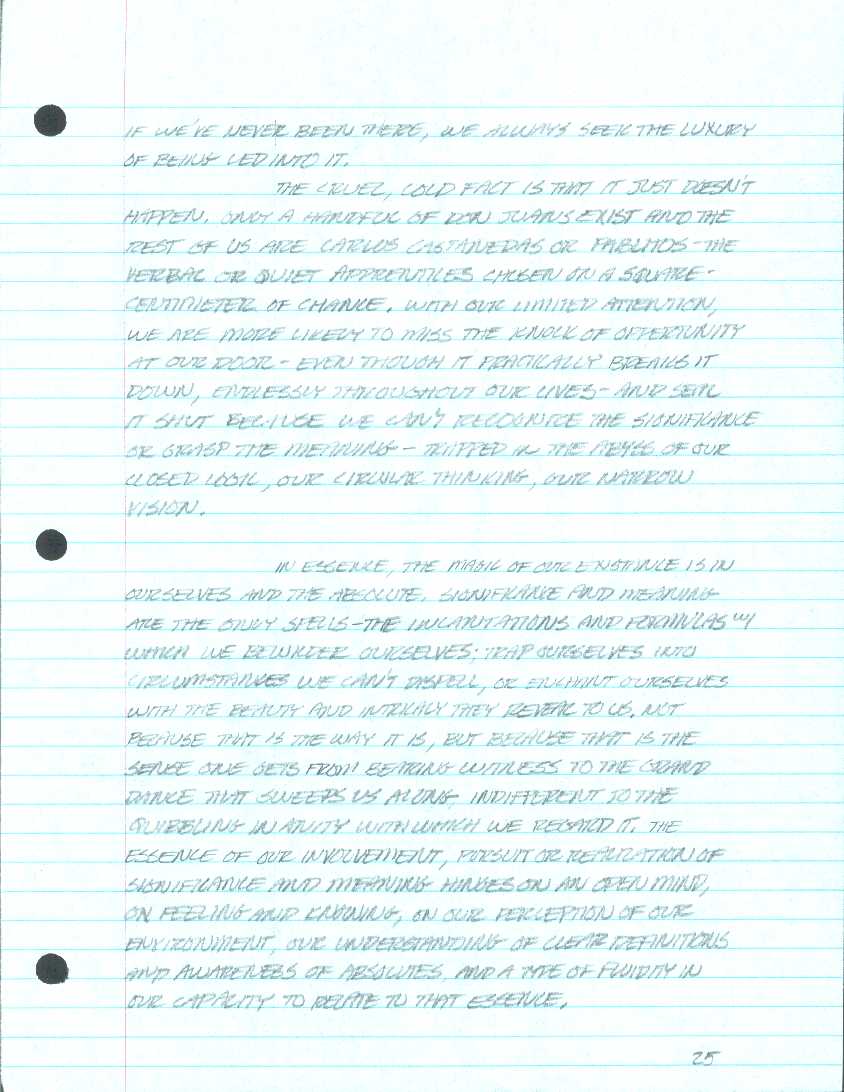 IF WE'VE NEVER BEEN THERE, WE ALWAYS SEEK THE LUXURY
OF BEING LED INTO IT.
THE CRUEL, COLD FACT IS THAT IT JUST DOESN'T
HAPPEN. ONLY A HANDFUL OF DON JUANS EXIST AND THE
REST OF US ARE CARLOS CASTANEDAS OR PABLITOS - THE
VERBAL OR QUIET APPRENTICES CHOSEN ON A SQUARE-
CENTIMETER OF CHANCE. WITH OUR LIMITED ATTENTION,
WE ARE MORE LIKELY TO MISS THE KNOCK OF OPPERTUNITY
AT OUR DOOR - EVEN THOUGH IT PRACTICALLY BREAKS IT
DOWN, ENDLESSLY THROUGHOUT OUR LIVES - AND SEAL
IT SHUT BECAUSE WE CAN'T RECOGNIZE THE SIGNIFICANCE
OR GRASP THE MEANING - TRAPPED IN THE ABYSS OF OUR
CLOSED LOGIC, OUR CIRCULAR THINKING, OUR NARROW
VISION.
IN ESSENCE, THE MAGIC OF OUR EXISTANCE IS IN
OURSELVES AND THE ABSOLUTE. SIGNIFICANCE AND MEANING
ARE THE ONLY SPELLS - THE INCANTATIONS AND FORMULAS W/
WHICH WE BEWILDER OURSELVES; TRAP OURSELVES INTO
CIRCUMSTANCES WE CAN'T DISPELL, OR ENCHANT OURSELVES
WITH THE BEAUTY AND INTRICACY THEY REVEAL TO US. NOT
BECAUSE THAT IS THE WAY IT IS, BUT BECAUSE THAT IS THE
SENSE ONE GETS FROM BEARING WITNESS TO THE GRAND
DANCE THAT SWEEPS US ALONG, INDIFFERENT TO THE
QUIBBLING INANITY WITH WHICH WE REGARD IT. THE
ESSENCE OF OUR INVOLVEMENT, PURSUIT OR REALIZATION OF
SIGNIFICANCE AND MEANING HINGES ON AN OPEN MIND,
ON FEELING AND KNOWING, ON OUR PERCEPTION OF OUR
ENVIRONMENT, OUR UNDERSTANDING OF CLEAR DEFINITIONS
AND AWARENESS OF ABSOLUTES, AND A TYPE OF FLUIDITY IN
OUR CAPACITY TO RELATE TO THAT ESSENCE.
25